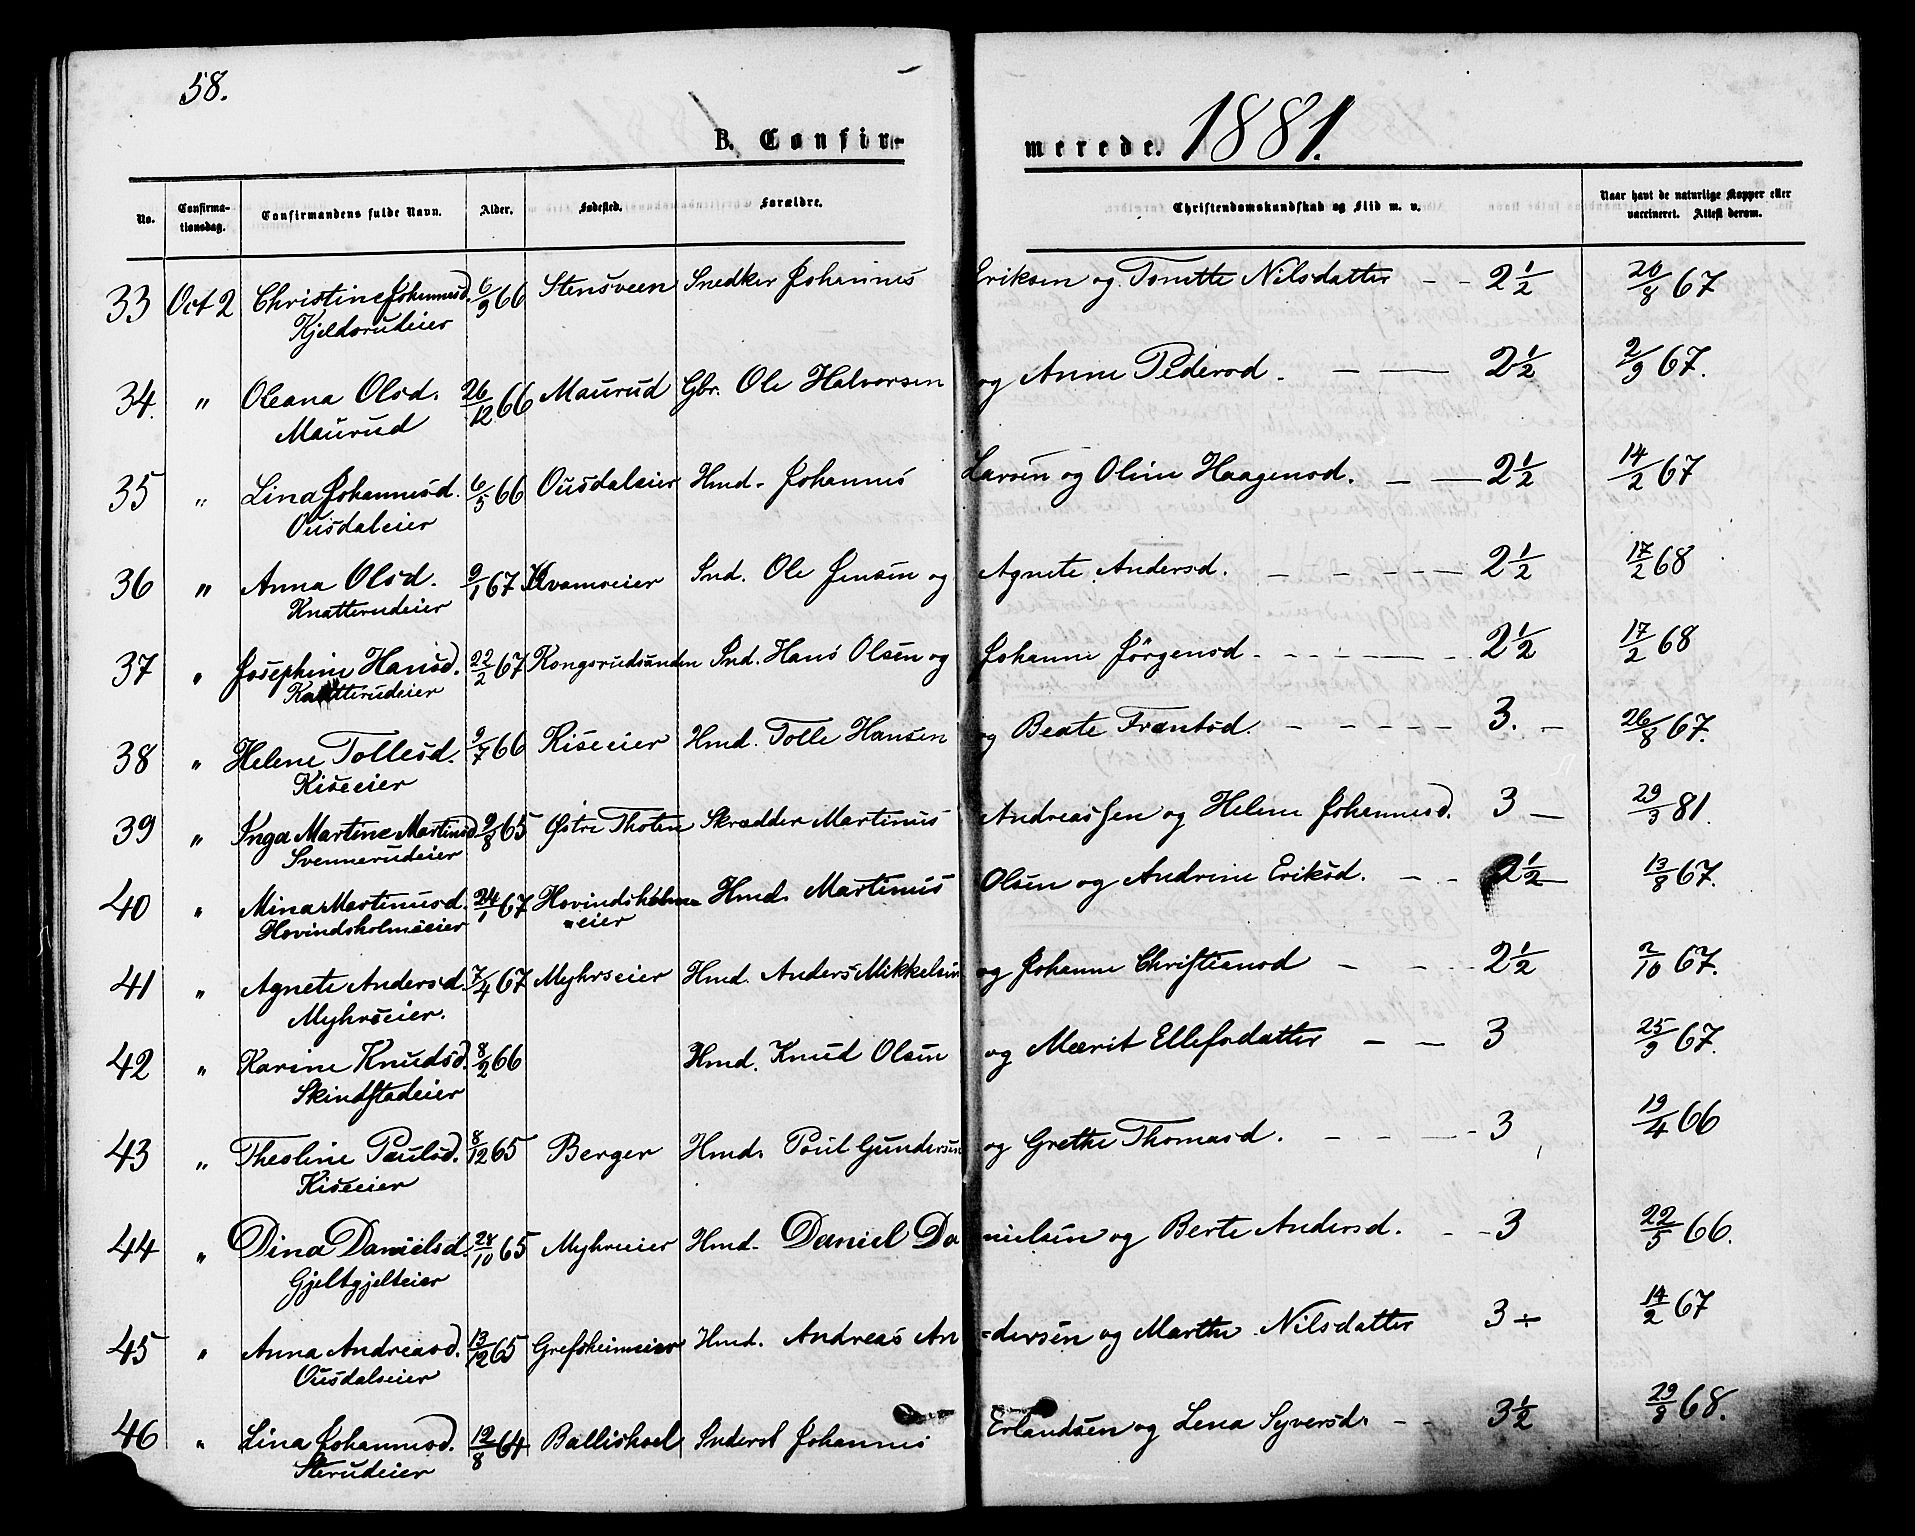 58.
B. Confir-
merede. 1881.
No. Confirma-tionsdag. Confirmandens fulde Navn. Alder. Fødested. Forældre. Christendomskundskab og Flid m. v. Naar havt de naturlige Kopper eller vaccineret. Attest derom.
33 Oct 2 Christine Johannesd. 6/9 66 Stensveen Snedker Johannes Eriksen og Tonette Nilsdatter - - 2 1/2 20/8 67
Kjeldsrudeier
34. " Oleana Olsd. 26/12 66 Maurud Gbr. Ole Halvorsen og Anne Pedersd. — — 2 1/2 2/9 67.
Maurud
35 " Lina Johannesd. 6/5 66 Ousdaleier Hmd. Johannes Larsen og Oline Haagensd. — — 2 1/2 14/2 67
Ousdaleier
36 " Anna Olsd. 9/1 67 Kvamseier Snd. Ole Jensen og Agnete Andersd. - - - - — 2 1/2 17/2 68
Knatterudeier
37 " Josephine Hansd. 22/2 67 Kongsrudsanden Snd. Hans Olsen og Johanne Jørgensd - - - - — - 2 1/2 17/2 68
Knatterudeier
38 " Helene Tollesd. 9/7 66 Riseeier Hmd. Tolle Hansen og Beate Frantsd. - - - - - 3. - 26/8 67.
Kiseeier
39 " Inga Martine Martinsd 9/8 65 Østre Thoten Skrædder Martinus Andreassen og Helene Johannesd. 3 — 29/3 81.
Svennerudeier
40 " Mina Martinusd. 24/1 67 Hovindsholm- Hmd. Martinus Olsen og Andrine Eriksd. - - 2 1/2 — 13/8 67.
Hovindsholmseier eier
41 " Agnete Andersd. 7/4 67 Myhrseier Hmd. Anders Mikkelsen og Johanne Christiansd - - - 2 1/2 2/10 67.
Myhrseier.
42 " Karine Knudsd. 8/2 66 Hmd. Knud Olsen og Mærit Ellefsdatter - — 3 25/9 67.
Skindstadeier
43 " Theoline Paulsd. 8/12 65 Berger Hmd. Poul Gundersen og Grethe Thomasd. - - - - 3 19/4 66
Kiseeier
44 " Dina Danielsd. 24/10 65 Myhreier Hmd. Daniel Da nielsen og Berte Andersd. - - 3 22/5 66.
Gjeltgjelteier
45 " Anna Andreasd. 13/12 65 Grefsheimeier Hmd. Andreas An dersen og Marthe Nilsdatter 3 ÷ 14/2 67
Ousdalseier
46 " Lina Johannesd. 12/8 64 Ballishoel Johannes Erlandsen og Lena Syversd. - - 3 1/2 29/8 68.
Sterudeier